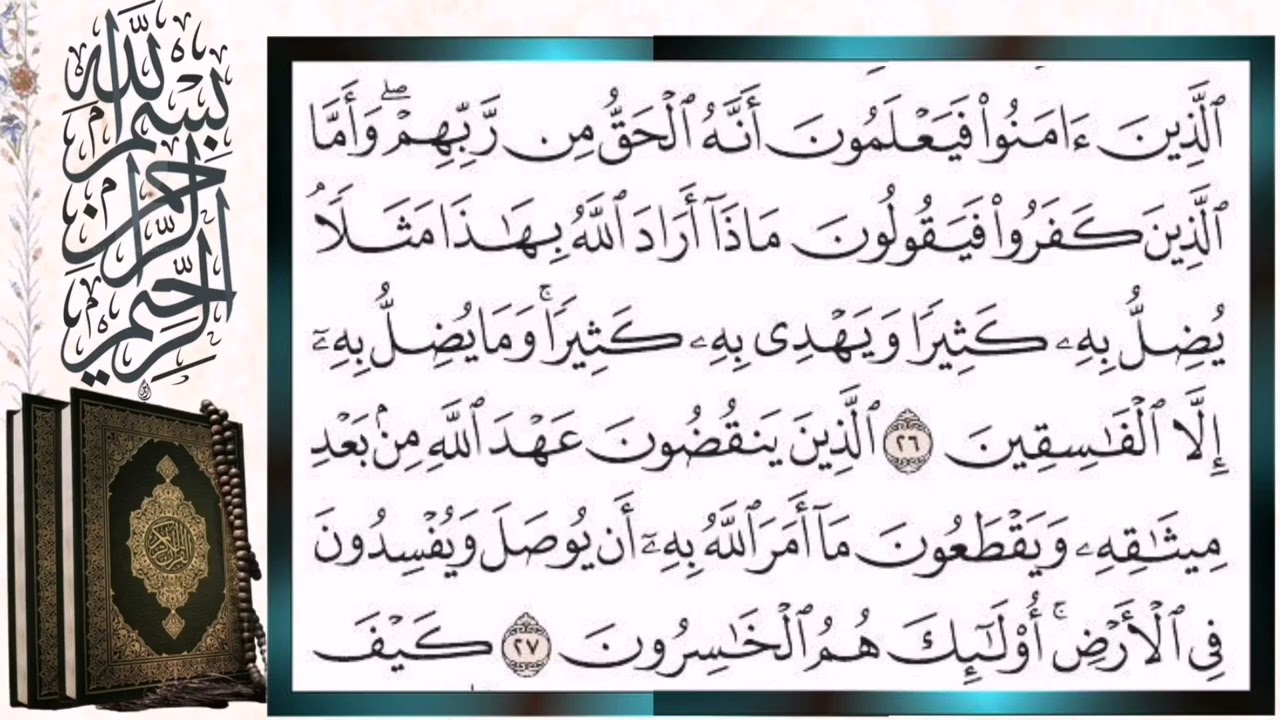 بِسْمِ اللَّهِ الرَّحْمَنِ الرَّحِيمِ
ٱلَّذِينَ ءَامَنُوا۟ فَيَعْلَمُونَ أَنَّهُ ٱلْحَقُّ مِن رَّبِّهِمْ ۖ وَأَمَّا
ٱلَّذِينَ كَفَرُوا۟ فَيَقُولُونَ مَاذَآ أَرَادَ ٱللَّهُ بِهَٰذَا مَثَلًا ۘ
يُضِلُّ بِهِۦ كَثِيرًا وَيَهْدِى بِهِۦ كَثِيرًا ۚ وَمَا يُضِلُّ بِهِۦٓ
إِلَّا ٱلْفَٰسِقِينَ ٢٦ ٱلَّذِينَ يَنقُضُونَ عَهْدَ ٱللَّهِ مِنۢ بَعْدِ
مِيثَٰقِهِۦ وَيَقْطَعُونَ مَآ أَمَرَ ٱللَّهُ بِهِۦٓ أَن يُوصَلَ وَيُفْسِدُونَ
فِى ٱلْأَرْضِ ۚ أُو۟لَٰٓئِكَ هُمُ ٱلْخَٰسِرُونَ ٢٧ كَيْفَ